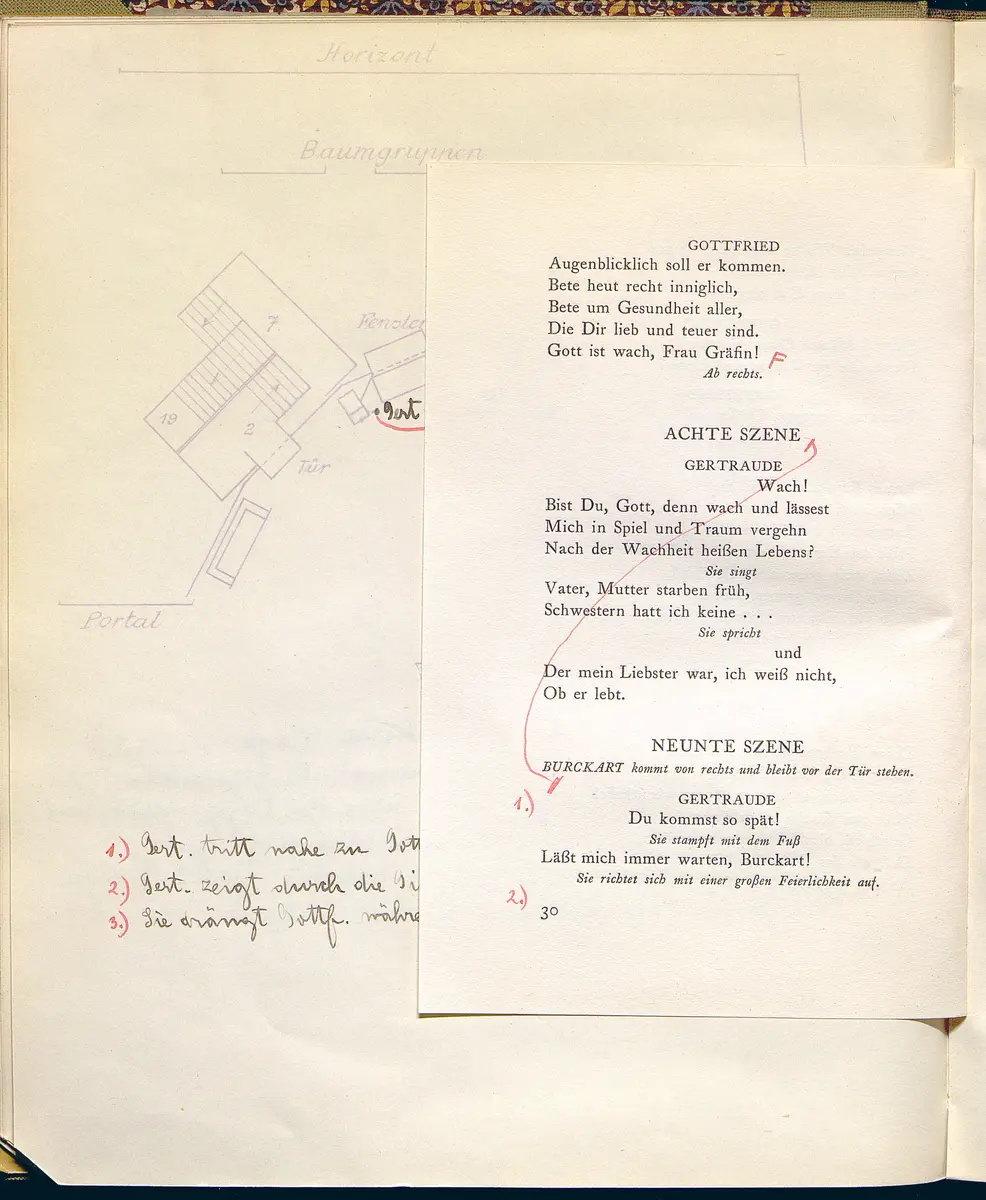 Horizont
Baumgruppen
7
Fenster
19
2
Gert
Tür
Portal
1.) Gert. tritt nahe zu
2.) Gert. zeigt durch die
3.) Sie drängt Gottf.
GOTTFRIED
Augenblicklich soll er kommen.
Bete heut recht inniglich,
Bete um Gesundheit aller,
Die Dir lieb und teuer sind.
Gott ist wach, Frau Gräfin! F
Ab rechts.
ACHTE SZENE
GERTRAUDE
Wach!
Bist Du, Gott, denn wach und lässest
Mich in Spiel und Traum vergehn
Nach der Wachheit heißen Lebens?
Sie singt
Vater, Mutter starben früh,
Schwestern hatt ich keine . . .
Sie spricht
und
Der mein Liebster war, ich weiß nicht,
Ob er lebt.
NEUNTE SZENE
BURCKART kommt von rechts und bleibt vor der Tür stehen.
1.)
GERTRAUDE
Du kommst so spät!
Sie stampft mit dem Fuß
Läßt mich immer warten, Burckart!
Sie richtet sich mit einer großen Feierlichkeit auf.
2.)
30